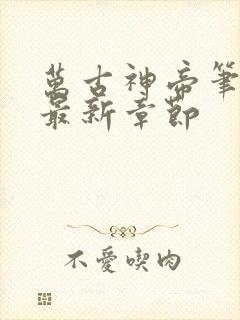 萬古神帝筆
最新章節
不愛喫肉